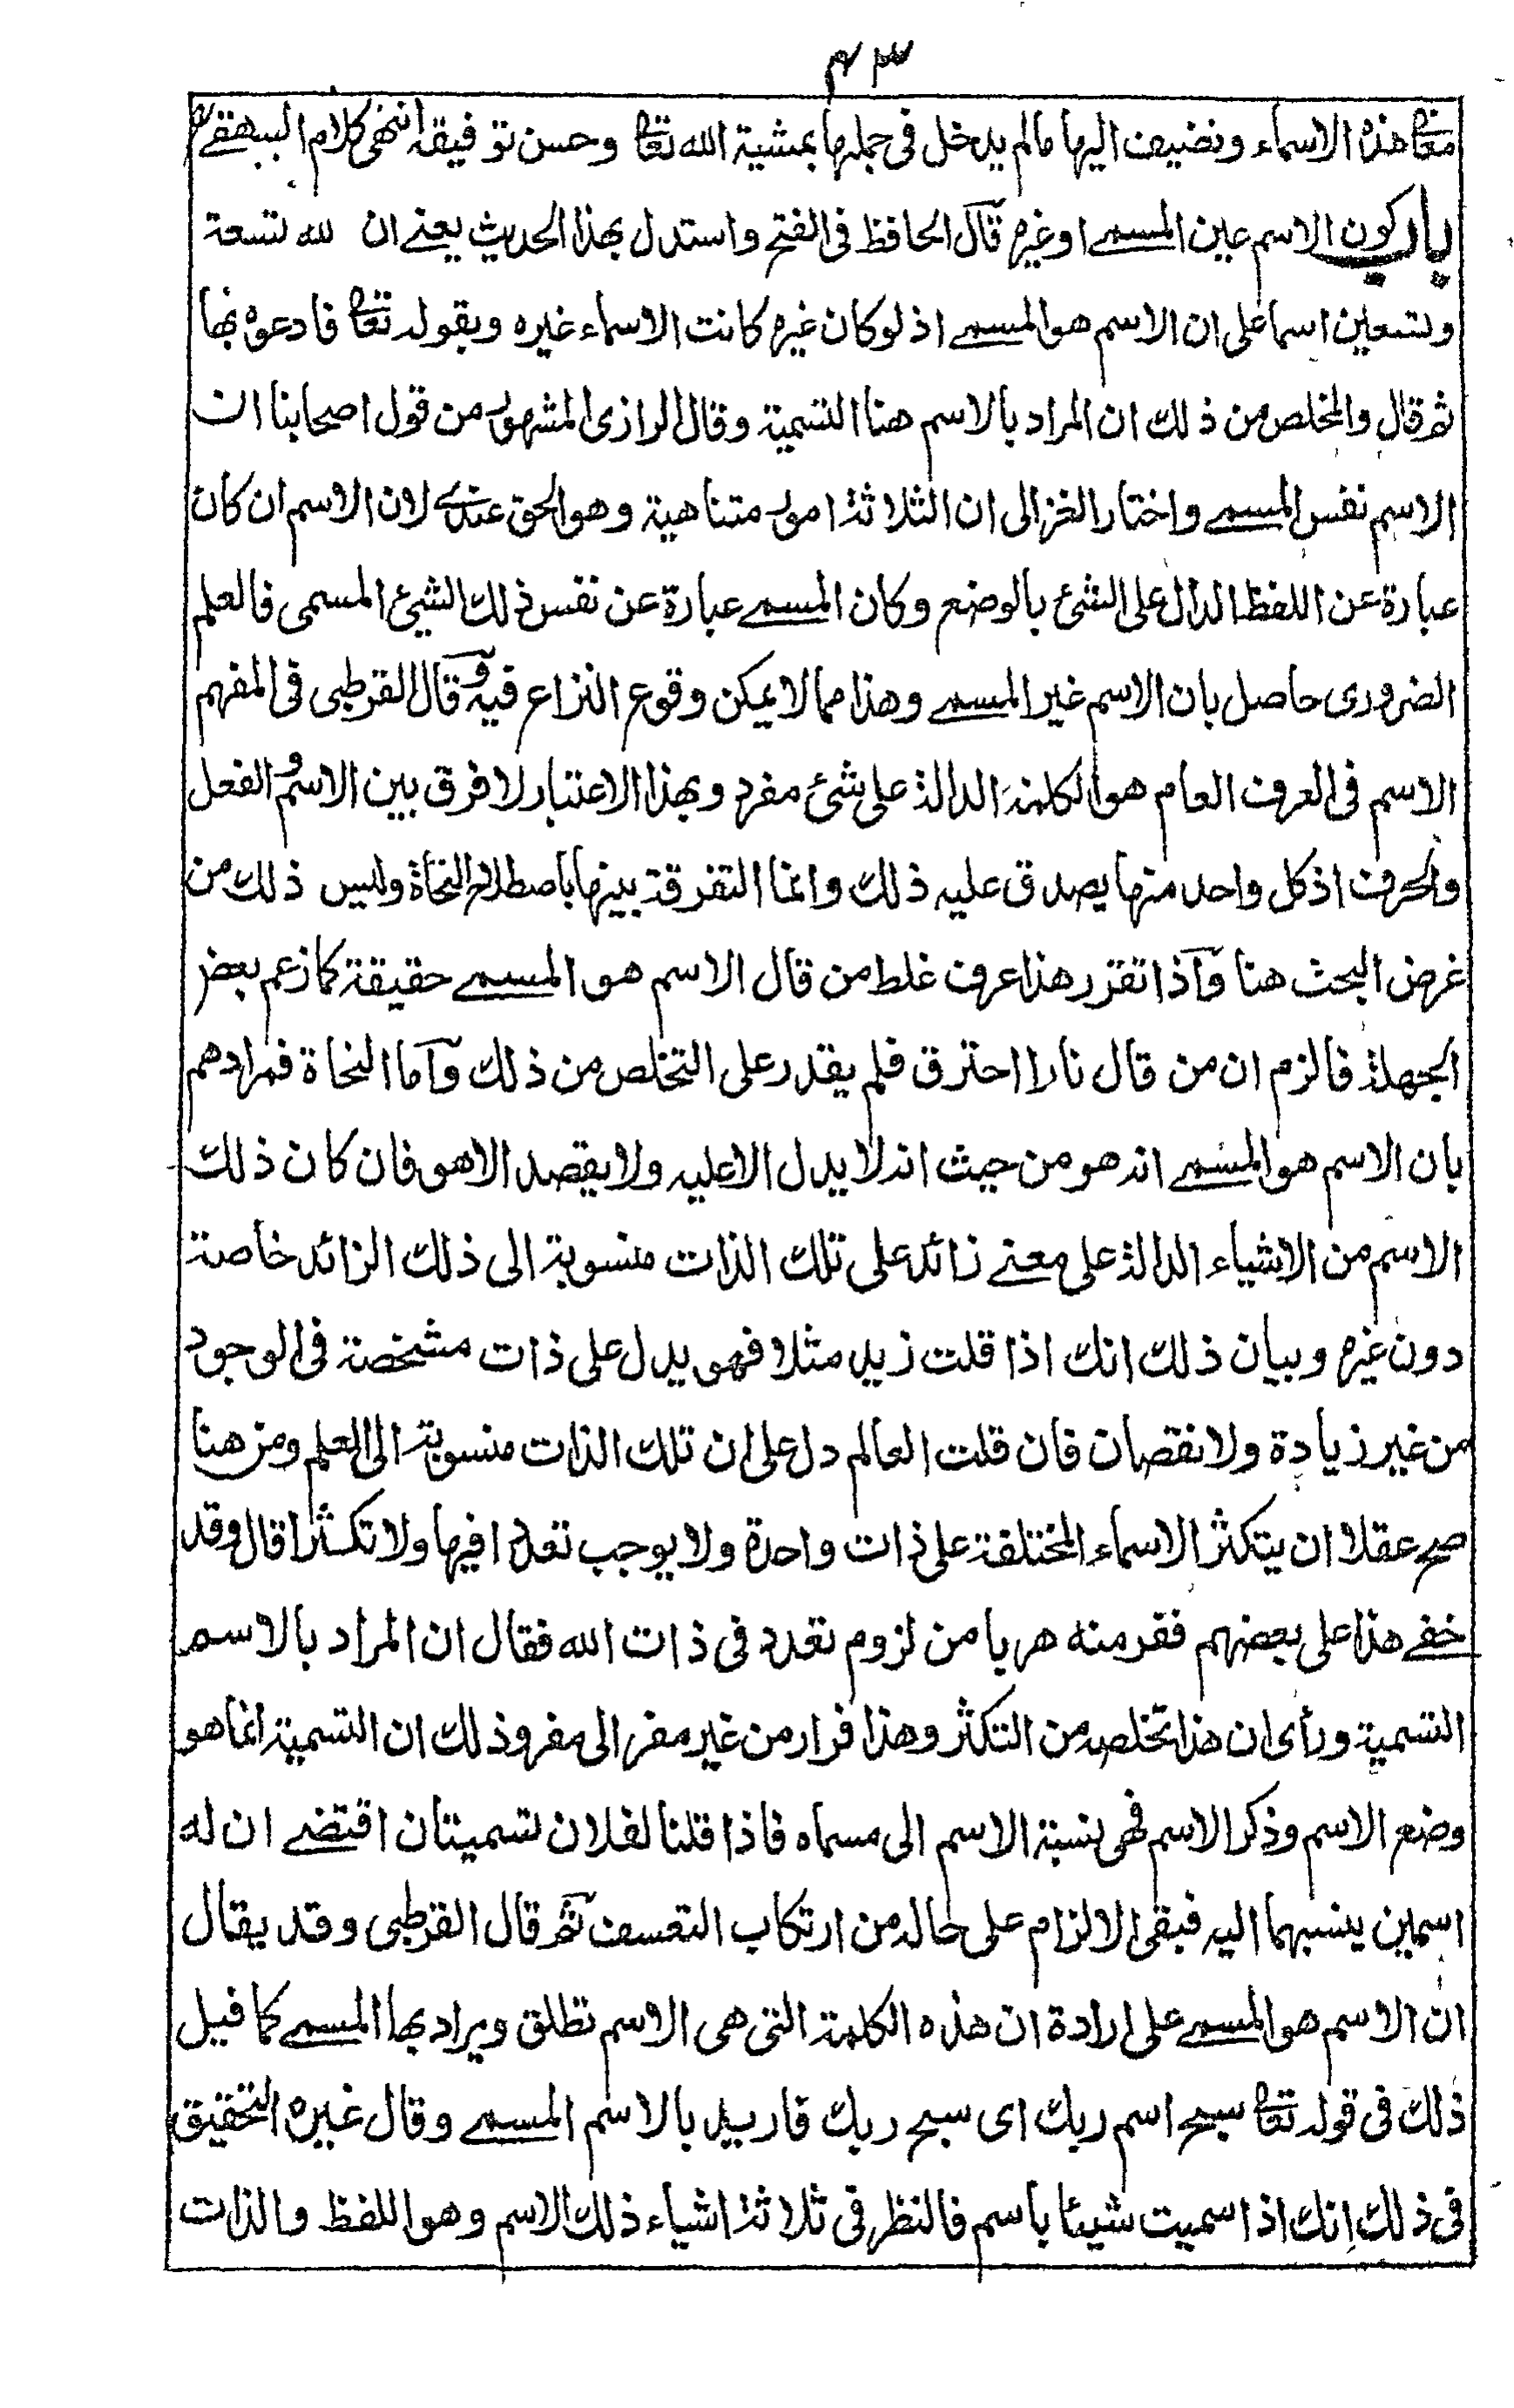 ٤٣
معانی هذه الاسماء ونضيف اليها مالم يدخل فى جملتها بمشية الله تعالى وحسن توفيقه انتهى كلام البيهقے
باب كون الاسم عين المسمے اوغيره قال الحافظ فى الفتح واستدل بهذا الحديث يعنے ان لله تسعة
وتسعين اسما على ان الاسم هو المسمے اذ لوكان غيره كانت الاسماء غيره وبقوله تعالى فادعوه بها
ثم قال والمخلص من ذلك ان المراد بالاسم هنا التسمية وقال الرازى المشهور من قول اصحابنا ان
الاسم نفس المسمے واختار الغزالى ان الثلاثة امور متناهية وهو الحق عندے لان الاسم ان كان
عبارة عن اللفظ الدال على الشئ بالوضع وكان المسمے عبارة عن نفس ذلك الشيئ المسمى فالعلم
الضرورى حاصل بان الاسم غير المسمے وهذا مما لا يمكن وقوع النزاع فيه وقال القرطبى فى المفهم
الاسم فى العرف العام هو الكلمة الدالة على شئ مفرد وبهذا الاعتبار لا فرق بين الاسم والفعل
والحرف اذ كل واحد منها يصدق عليه ذلك وانما التفرقة بينها باصطلاح النحاة وليس ذلك من
غرض البحث هنا واذا تقرر هذا عرف غلط من قال الاسم هو المسمے حقيقة كما زعم بعض
الجهلة فالزم ان من قال نارا احترق فلم يقدر على التخلص من ذلك واما النحاة فمرادهم
بان الاسم هو المسمے انه هو من حيث انه لا يدل الا عليه ولا يقصد الا هو فان كان ذلك
الاسم من الاشياء الدالة على معنے زائد على تلك الذات منسوبة الى ذلك الزائد خاصة
دون غيره وبيان ذلك انك اذا قلت زيد مثلا فهو يدل على ذات مشخصة فى الوجود
من غير زيادة ولا نقصان فان قلت العالم دل على ان تلك الذات منسوبة الى العلم ومن هنا
صح عقلا ان يتكثر الاسماء المختلفة على ذات واحدة ولا يوجب تعددا فيها ولا تكثرا قال وقد
خفے هذا على بعضهم ففر منه هربا من لزوم تعدد فى ذات الله فقال ان المراد بالاسم
التسمية ورأى ان هذا تخلصه من التكثر وهذا فرار من غير مفر الى مفر وذلك ان التسمية انما هو
وضع الاسم وذكر الاسم فهى نسبة الاسم الى مسماه فاذا قلنا لفلان تسميتان اقتضے ان له
اسمين ينسبهما اليه فبقى الالزام على حاله من ارتكاب التعسف ثم قال القرطبى وقد يقال
ان الاسم هو المسمے على ارادة ان هذه الكلمة التى هى الاسم تطلق ويراد بها المسمے كما قيل
ذلك فى قوله تعالى سبح اسم ربك اى سبح ربك فاريد بالاسم المسمے وقال غيره التحقيق
فى ذلك انك اذا سميت شيئا باسم فالنظر فى ثلاثة اشياء ذلك الاسم وهو اللفظ والذات